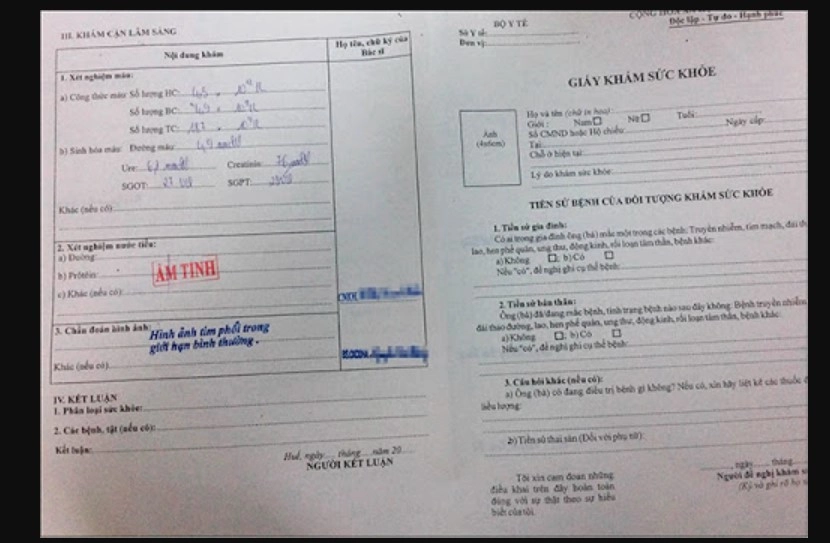 III. KHÁM CẬN LÂM SÀNG
Nội dung khám
Họ tên, chữ ký của
Bác sĩ
1. Xét nghiệm máu:
a) Công thức máu: Số lượng HC: 4,5
Số lượng BC:
Số lượng TC:
b) Sinh hóa máu: Đường máu: 4,9
Ure: Creatinin: 76
SGOT: 27 SGPT:
Khác (nếu có)
2. Xét nghiệm nước tiểu:
a) Đường:
b) Prôtêin:
ÂM TÍNH
c) Khác (nếu có):
3. Chẩn đoán hình ảnh:
Hình ảnh tim phổi trong
giới hạn bình thường.
Khác (nếu có)
IV. KẾT LUẬN
1. Phân loại sức khỏe:
2. Các bệnh, tật (nếu có):
Kết luận:
Huế, ngày.... tháng.... năm 20
NGƯỜI KẾT LUẬN
BỘ Y TẾ
Sở Y tế:
Đơn vị:
CỘNG HÒA
Độc lập - Tự do - Hạnh phúc
GIẤY KHÁM SỨC KHỎE
Ảnh
(4x6cm)
Họ và tên (chữ in hoa):
Giới: Nam☐ Nữ☐ Tuổi:
Số CMND hoặc Hộ chiếu: Ngày cấp:
Tại:
Chỗ ở hiện tại:
Lý do khám sức khỏe:
TIỀN SỬ BỆNH CỦA ĐỐI TƯỢNG KHÁM SỨC KHỎE
1. Tiền sử gia đình:
Có ai trong gia đình ông (bà) mắc một trong các bệnh: Truyền nhiễm, tim mạch, đái
lao, hen phế quản, ung thư, động kinh, rối loạn tâm thần, bệnh khác:
a) Không ☐; b) Có ☐
Nếu "có", đề nghị ghi cụ thể bệnh:
2. Tiền sử bản thân:
Ông (bà) đã/đang mắc bệnh, tình trạng bệnh nào sau đây không: Bệnh truyền nhiễm,
đái tháo đường, lao, hen phế quản, ung thư, động kinh, rối loạn tâm thần, bệnh khác:
a) Không ☐; b) Có ☐
Nếu "có", đề nghị ghi cụ thể bệnh:
3. Câu hỏi khác (nếu có):
a) Ông (bà) có đang điều trị bệnh gì không? Nếu có, xin hãy liệt kê các thuốc
liều lượng:
b) Tiền sử thai sản (Đối với phụ nữ):
Tôi xin cam đoan những
điều khai trên đây hoàn toàn
đúng với sự thật theo sự hiểu
biết của tôi.
ngày...... tháng
Người đề nghị khám
(Ký và ghi rõ họ